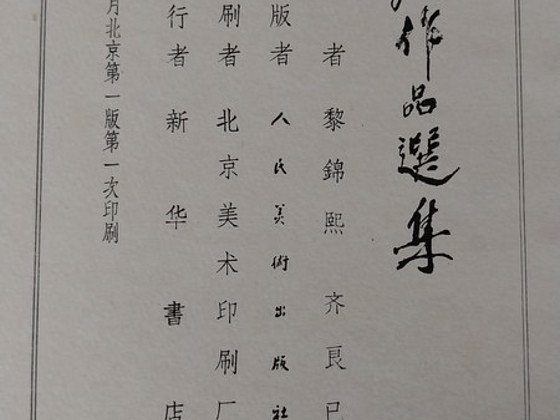 作品選集
者 黎錦熙 齐良已
版者 人民美術出版社
刷者 北京美术印刷厂
行者 新华書店
月北京第一版第一次印刷